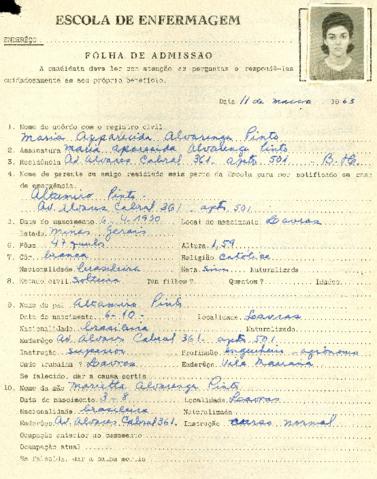 ESCOLA DE ENFERMAGEM
ENDERÊÇO
FÔLHA DE ADMISSÃO
A candidata deve ler com atenção as perguntas e respondê-las
cuidadosamente em seu próprio benefício.
Data 11 de março 1963
1. Nome de acôrdo com o registro civil
Maria Apparecida Alvarenga Pinto
2. Assinatura Maria Aparecida Alvarenga Pinto
3. Residência Av. Alvares Cabral 361. apto. 501 - B. H.
4. Nome de parente ou amigo residindo mais perto da Escola para ser notificado em caso
de emergência.
Altamiro Pinto.
Av. Alvares Cabral 361 - apto. 501.
5. Data do nascimento 6. 4. 1930 Local do nascimento Lavras
Estado Minas Gerais
6. Pêso 47 quilos Altura 1,59
7. Côr branca Religião católica
Nacionalidade brasileira Nata sim Naturalizada
8. Estado civil solteira Tem filhos? Quantos? Idades
9. Nome do pai Altamiro Pinto
Data do nascimento 6-10- Localidade Lavras
Nacionalidade brasileira Naturalizado
Enderêço Av. Alvares Cabral 361. apto 501.
Instrução superior Profissão Engenheiro-agrônomo
Onde trabalha? Lavras Enderêço
Se falecido, dar a causa mortis
10. Nome da mãe Marietta Alvarenga Pinto
Data do nascimento 3-8 Localidade Lavras
Nacionalidade brasileira Naturalizada
Enderêço Av. Alvares Cabral 361. Instrução curso normal
Ocupação anterior ao casamento
Ocupação atual
Se falecida, dar a causa mortis